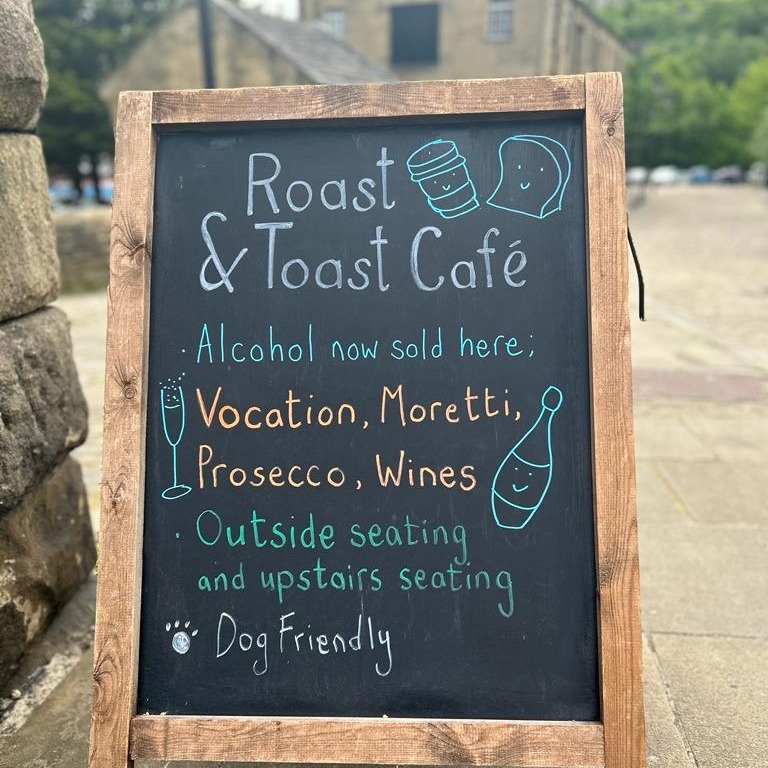 Roast
& Toast Café
· Alcohol now sold here;
Vocation, Moretti,
Prosecco, Wines
· Outside seating
and upstairs seating
Dog Friendly